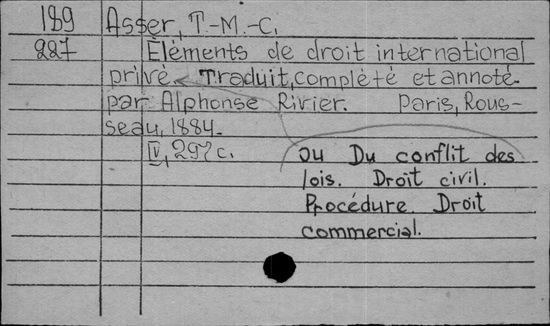 189 Asser, T.-M.-C.
227 Éléments de droit international
privé. Traduit, complété et annoté
par Alphonse Rivier. Paris, Rous-
seau, 1884.
IV, 297 c.
ou Du conflit des
lois. Droit civil.
Procédure. Droit
commercial.